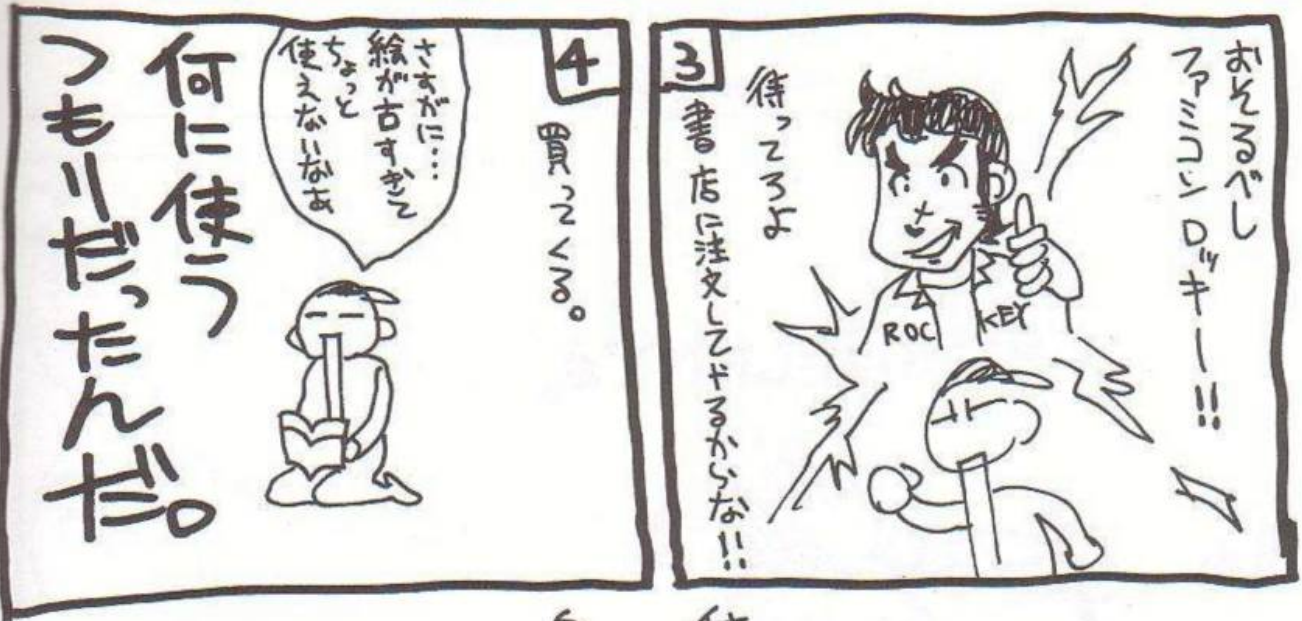 おそるべし
ファミコンロッキー!!
ROC KEY
待ってろよ
3
書店に注文してやるからな!!
4
買ってくる。
さすがに…
絵が古すぎて
ちょっと
使えないなあ
何に使う
つもりだったんだ。